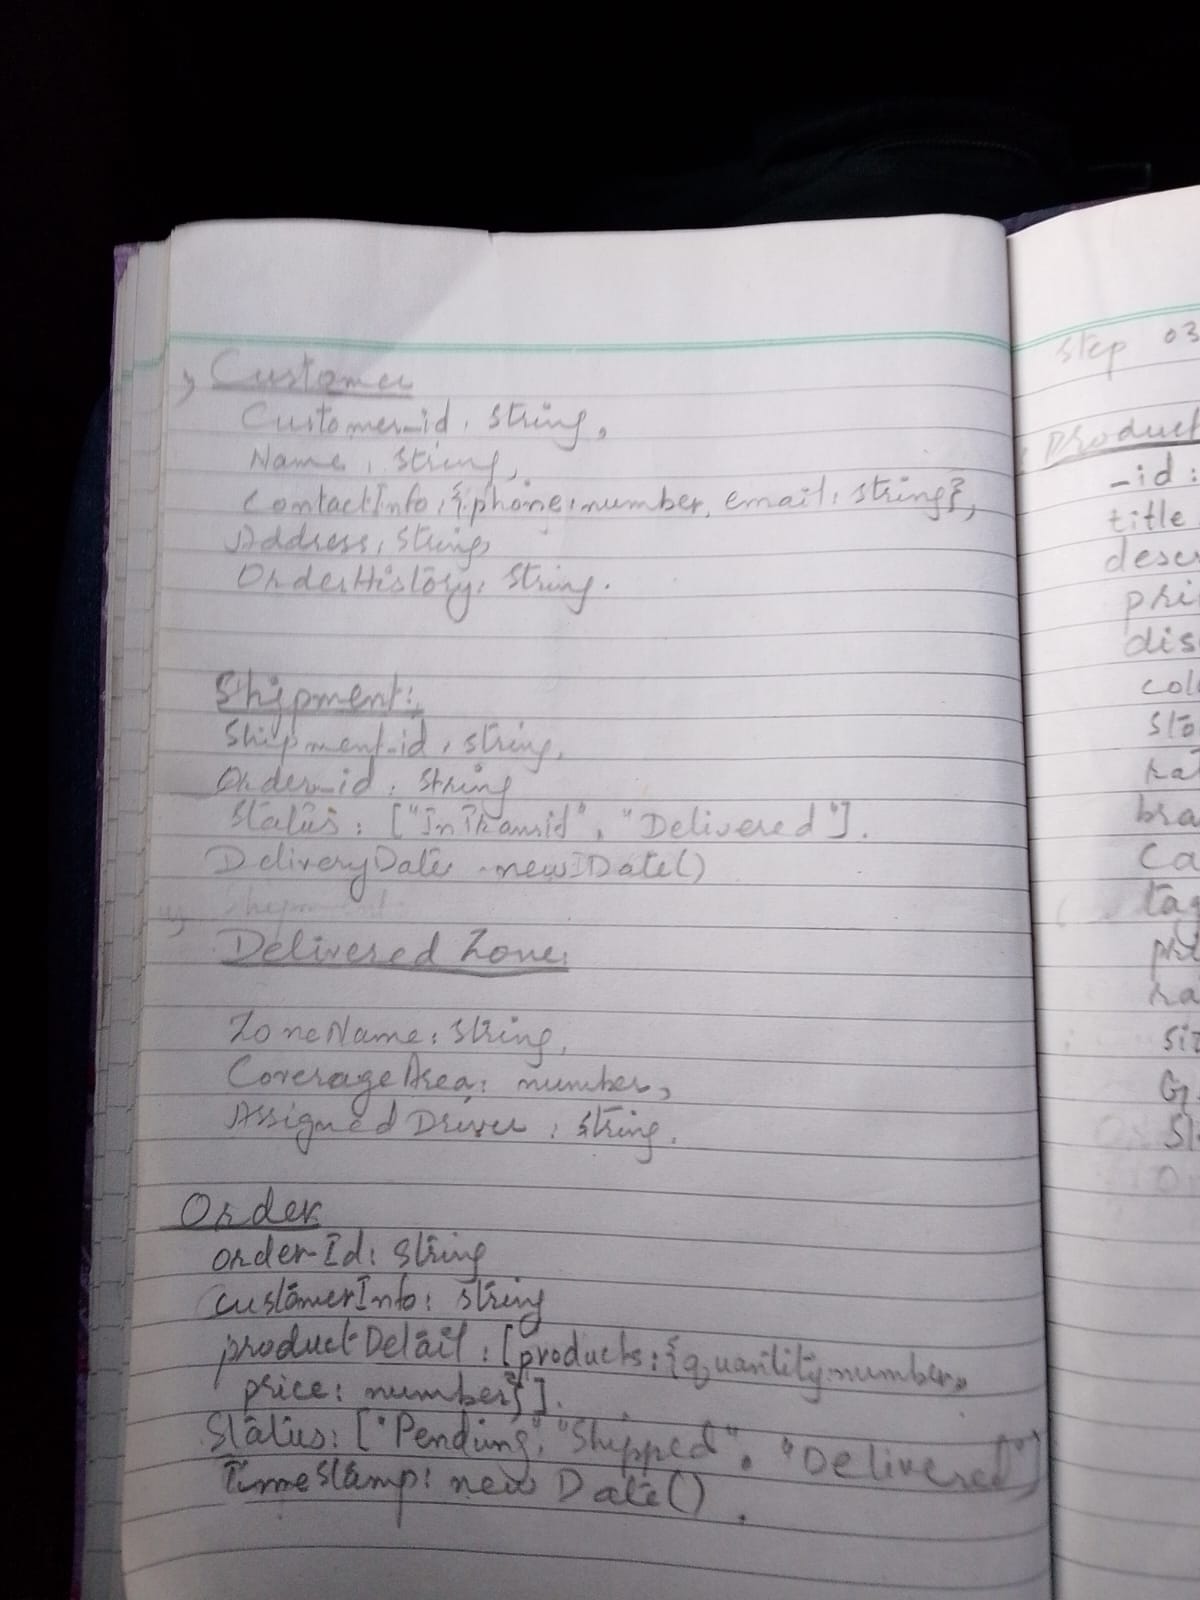 Customer
Customer_id : string,
Name : string,
ContactInfo : {phone : number, email : string},
Address : string,
OrderHistory : string.
Shipment :
Shipment_id : string,
Order_id : string
Status : ["InTransid", "Delivered"].
DeliveryDate new Date()
Shipment
Delivered Zone:
ZoneName : string,
CoverageArea : number,
AssignedDriver : string.
Order
order-Id : string
customerInfo : string
product-Detail : [products : {quantity:number,
price : number}].
Status : ["Pending", "Shipped", "Delivered"]
TimeStamp : new Date().
Step 03
Product
_id :
title